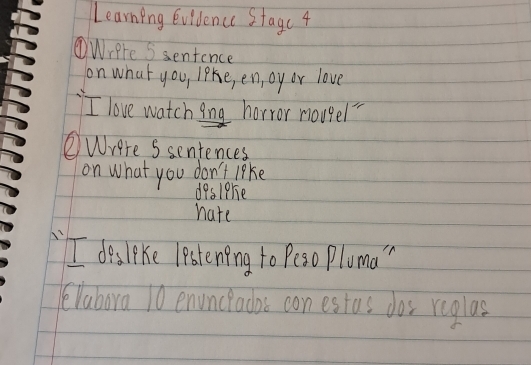 Learning Evidence Stage 4
① Write 5 sentence
on what you, like, en, oy or love
"I love watching horror moviel"
② Write 5 sentences
on what you don't like
deslike
hate
"I deslike listening to Peso Pluma"
Elabora 10 enunciados con estas dos reglas